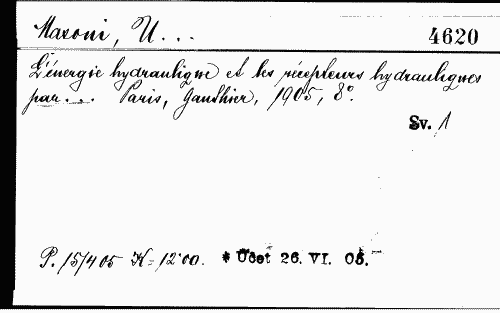 Masoni, U...
4620
L'énergie hydraulique et les récepteurs hydrauliques
par... Paris, Gauthier, 1905, 8°.
Sv. 1
P. 15/4 05 K=12·00. * Účet 26. VI. 05.